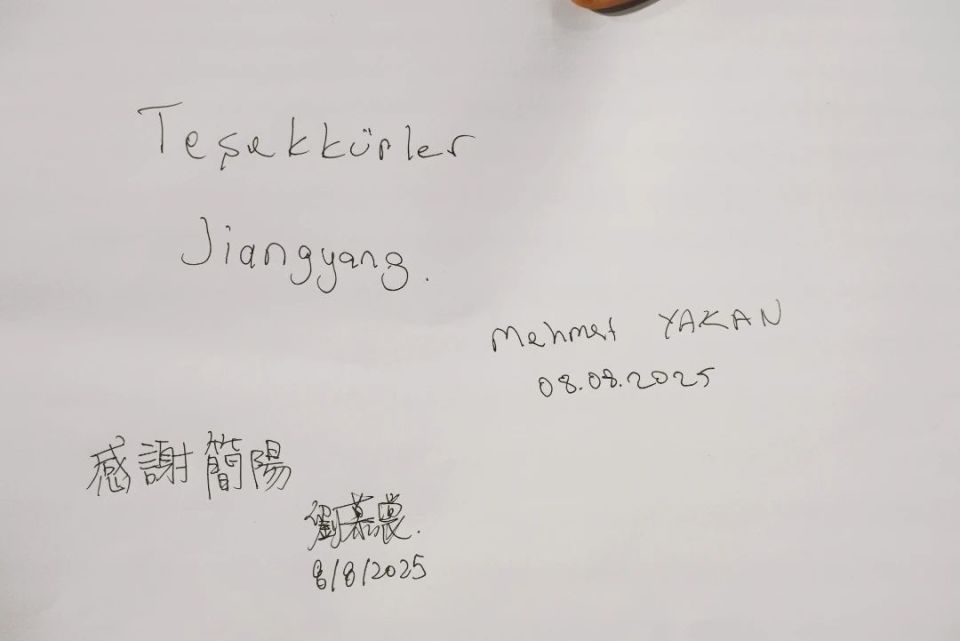 Teşekkürler
Jiangyang.
Mehmet YAKAN
08.08.2025
感謝簡陽
劉慕裳.
8/8/2025